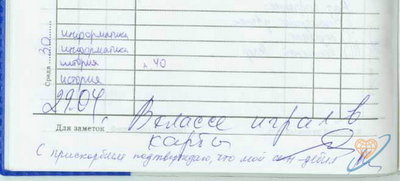 Среда 30
информатика
информатика
история п 40
история
29.04. В классе играл в
Для заметок карты
С прискорбием подтверждаю, что мой сын - дебил